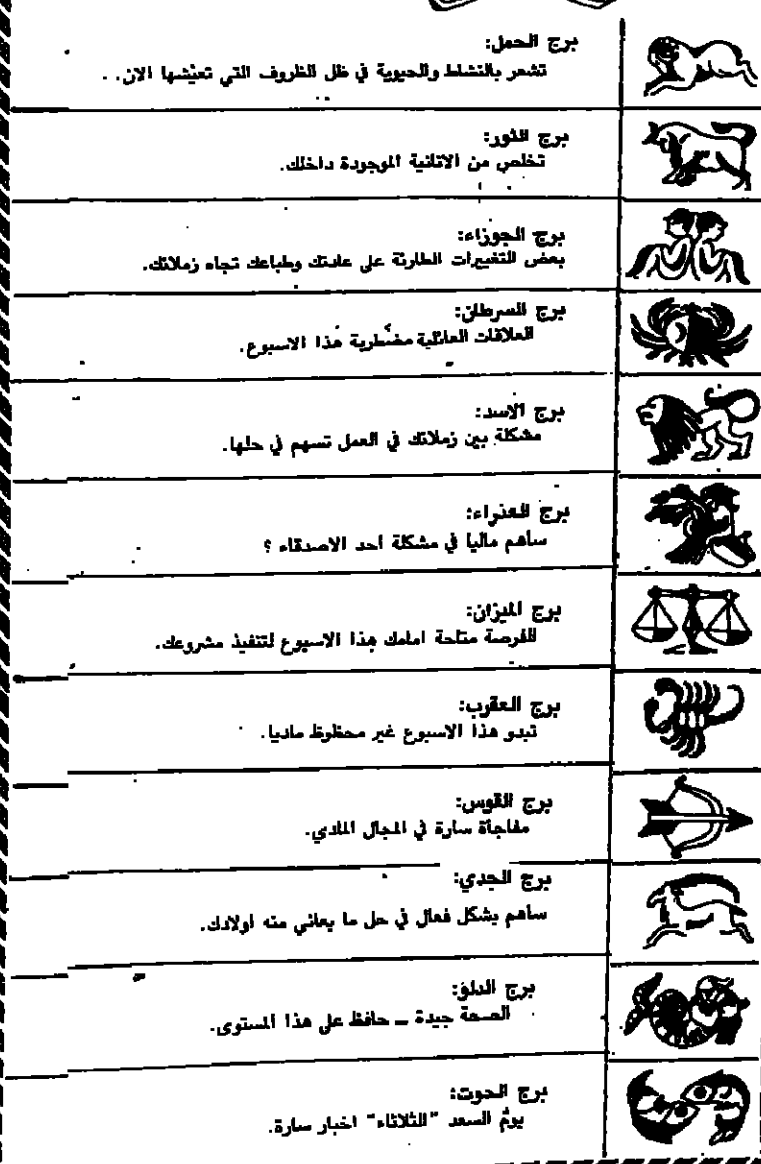 برج الحمل:
تشعر بالنشاط والحيوية في ظل الظروف التي تعيشها الان. .
برج الثور:
تخلص من الانانية الموجودة داخلك.
برج الجوزاء:
بعض التغييرات الطارئة على عادتك وطباعك تجاه زملائك.
برج السرطان:
العلاقات العائلية مضطربة هذا الاسبوع.
برج الاسد:
مشكلة بين زملائك في العمل تسهم في حلها.
برج العذراء:
ساهم ماليا في مشكلة احد الاصدقاء ؟
برج الميزان:
الفرصة متاحة امامك هذا الاسبوع لتنفيذ مشروعك.
برج العقرب:
تبدو هذا الاسبوع غير محظوظ ماديا.
برج القوس:
مفاجأة سارة في المجال المادي.
برج الجدي:
ساهم بشكل فعال في حل ما يعاني منه اولادك.
برج الدلو:
الصحة جيدة ــ حافظ على هذا المستوى.
برج الحوت:
يوم السعد "الثلاثاء" اخبار سارة.